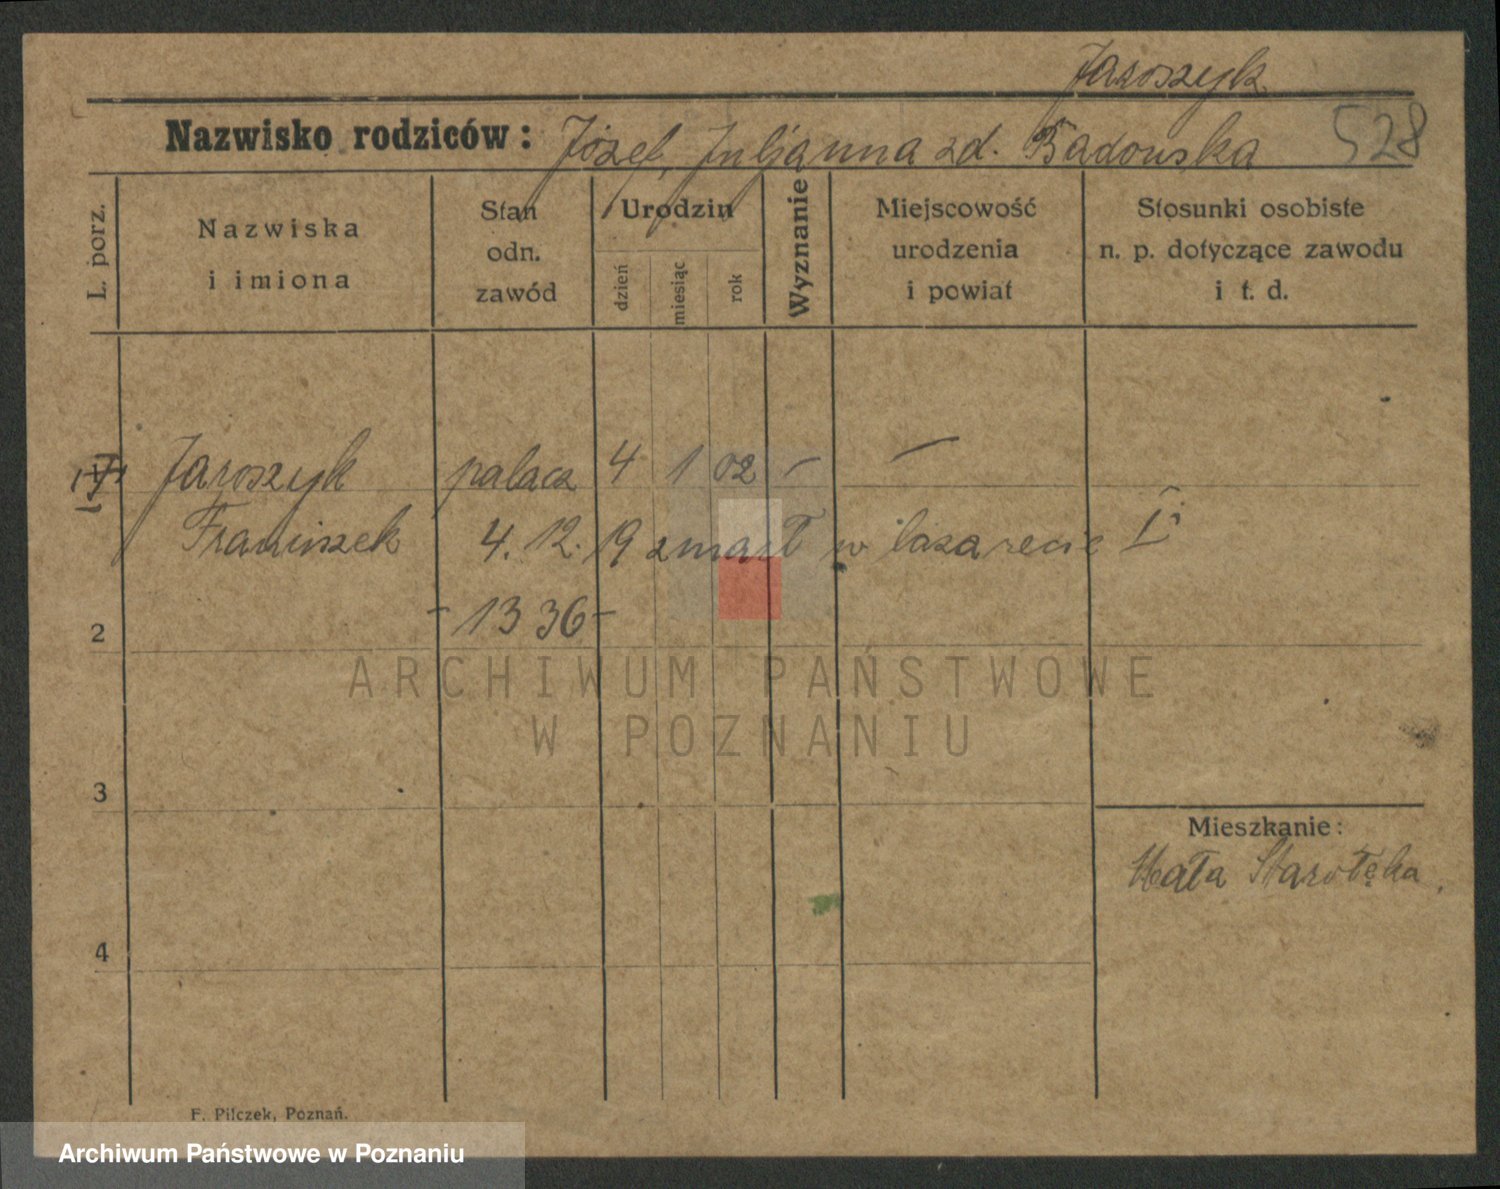 Jaroszyk
Nazwisko rodziców: Józef, Juljanna zd. Badowska 528
L. porz.
Nazwiska
i imiona
Stan
odn.
zawód
Urodzin
dzień
miesiąc
rok
Wyznanie
Miejscowość
urodzenia
i powiat
Stosunki osobiste
n. p. dotyczące zawodu
i t. d.
Jaroszyk palacz 4 1 02 – –
Franciszek 4. 12. 19 zmarł w lazarecie
– 13 36 –
2
ARCHIWUM PAŃSTWOWE
W POZNANIU
3
Mieszkanie:
Mała Starołęka.
4
F. Pilczek, Poznań.
Archiwum Państwowe w Poznaniu